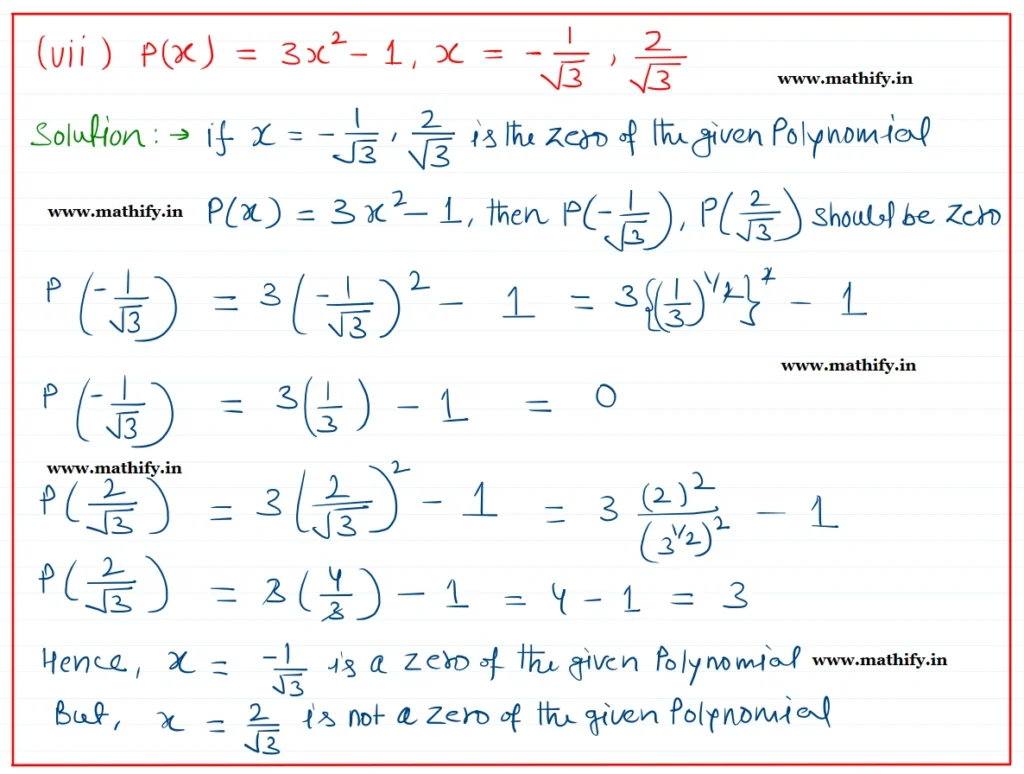 (vii) P(x) = 3x² - 1, x = -1/√3, 2/√3
www.mathify.in
Solution:→ if x = -1/√3, 2/√3 is the zero of the given Polynomial
www.mathify.in P(x) = 3x² - 1, then P(-1/√3), P(2/√3) should be zero
P(-1/√3) = 3(-1/√3)² - 1 = 3{(1/3)^1/2}² - 1
www.mathify.in
P(-1/√3) = 3(1/3) - 1 = 0
www.mathify.in
P(2/√3) = 3(2/√3)² - 1 = 3 (2)²/(3^1/2)² - 1
P(2/√3) = 3(4/3) - 1 = 4 - 1 = 3
Hence, x = -1/√3 is a zero of the given Polynomial www.mathify.in
But, x = 2/√3 is not a zero of the given Polynomial